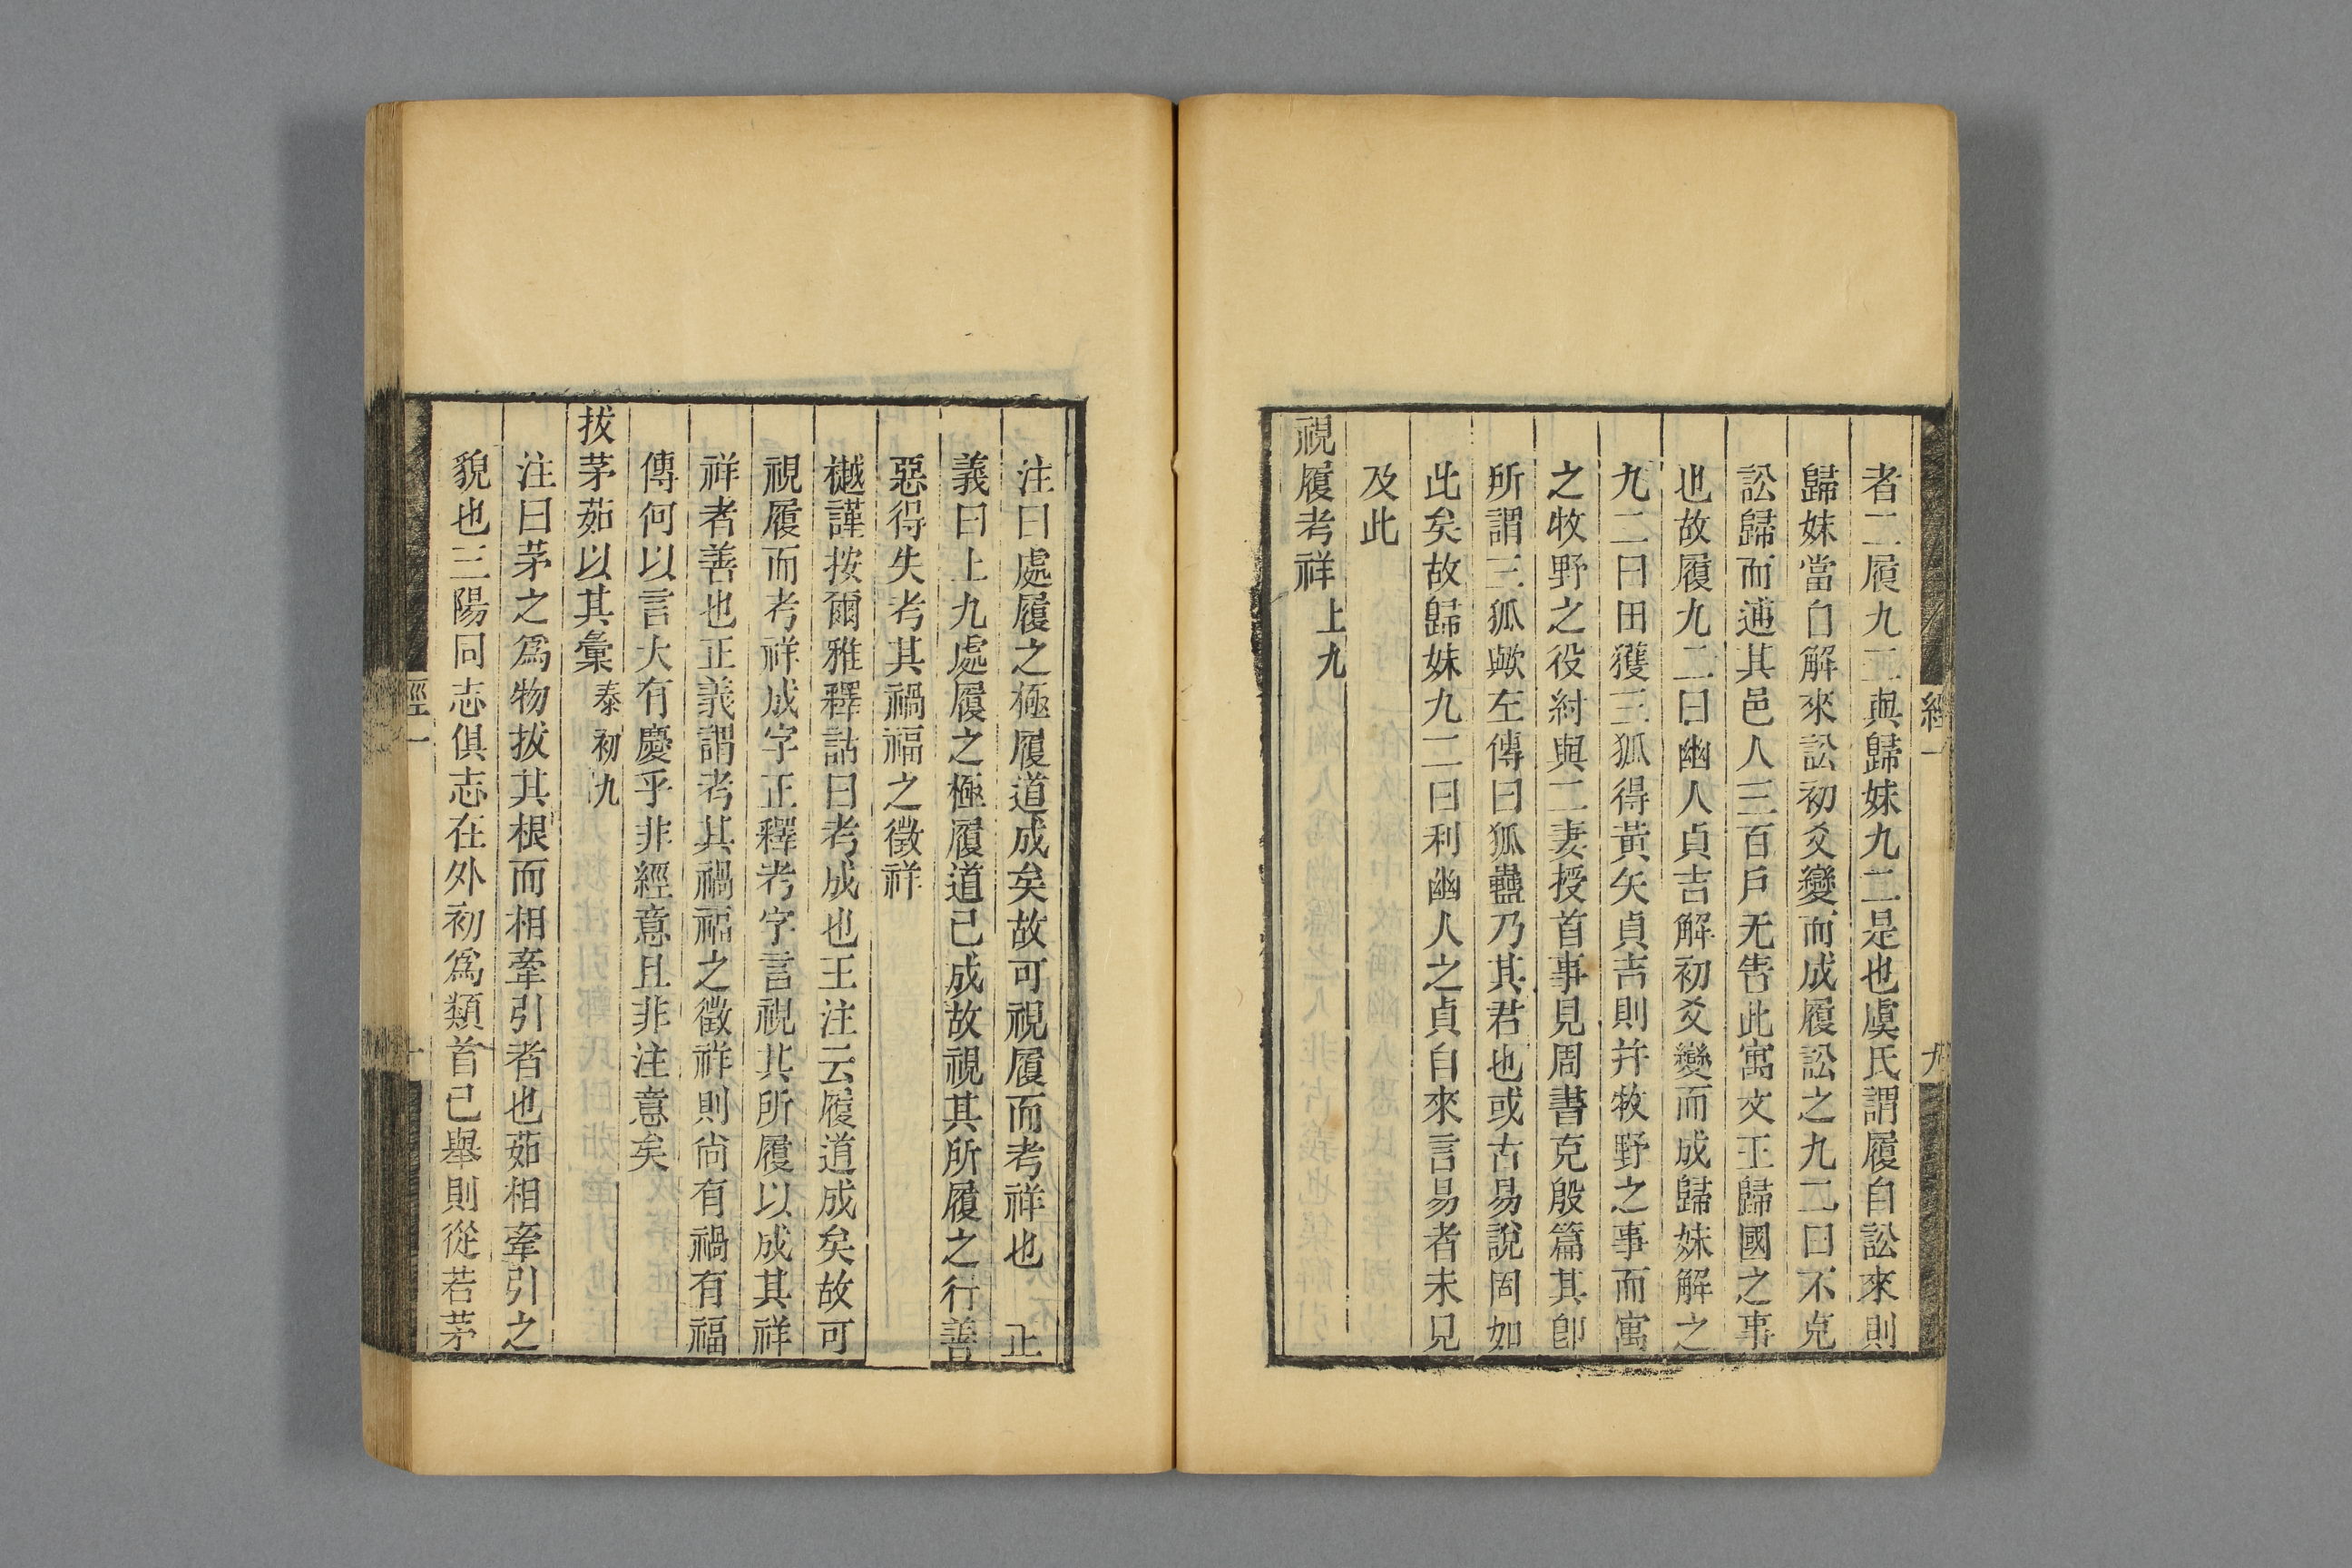 者二履九二與歸妹九二是也虞氏謂履自訟來則
歸妹當自解來訟初爻變而成履訟之九二曰不克
訟歸而逋其邑人三百戶无眚此寓文王歸國之事
也故履九二曰幽人貞吉解初爻變而成歸妹解之
九二曰田獲三狐得黃矢貞吉則并牧野之事而寓
之牧野之役紂與二妻授首事見周書克殷篇其卽
所謂三狐歟左傳曰狐蠱乃其君也或古易說固如
此矣故歸妹九二曰利幽人之貞自來言易者未見
及此
視履考祥上九
經一
九
注曰處履之極履道成矣故可視履而考祥也 正
義曰上九處履之極履道已成故視其所履之行善
惡得失考其禍福之徵祥
樾謹按爾雅釋詁曰考成也王注云履道成矣故可
視履而考祥成字正釋考字言視其所履以成其祥
祥者善也正義謂考其禍福之徵祥則尙有禍有福
傳何以言大有慶乎非經意且非注意矣
拔茅茹以其彙泰初九
注曰茅之爲物拔其根而相牽引者也茹相牽引之
貌也三陽同志俱志在外初爲類首已舉則從若茅
經一
十